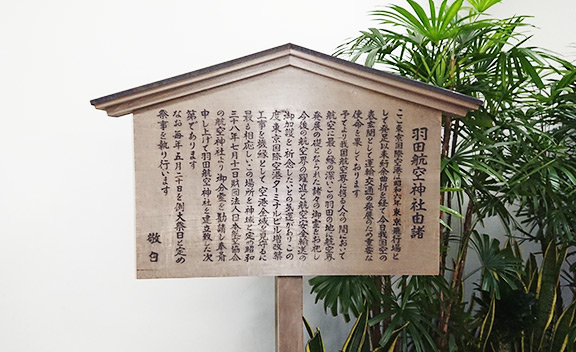 羽田航空神社由緒
ここ東京国際空港は昭和六年東京飛行場と
して発足以来紆余曲折を経て今日我国空の
表玄関として運輸交通の発展のため重要な
使命を果しております
予てより我国航空界に携る人々の間において
航空に最も縁の深いこの羽田の地に航空界
発展の礎となられた諸々の御霊をお祀し
今後の航空界の躍進と航空安全輸送の
御加護を祈念したいとの気運があり この
度東京国際空港ターミナルビル増改築
工事を機縁として空港全域を展望するに
最も相応しいこの場所を神域と定め昭和
三十八年七月二日財団法人日本航空協会
の航空神社より御分霊を勧請し奉斎
申し上げて羽田航空神社を建立致した次
第であります
なお毎年五月二十日を例大祭日と定め
祭事を執り行います
敬白